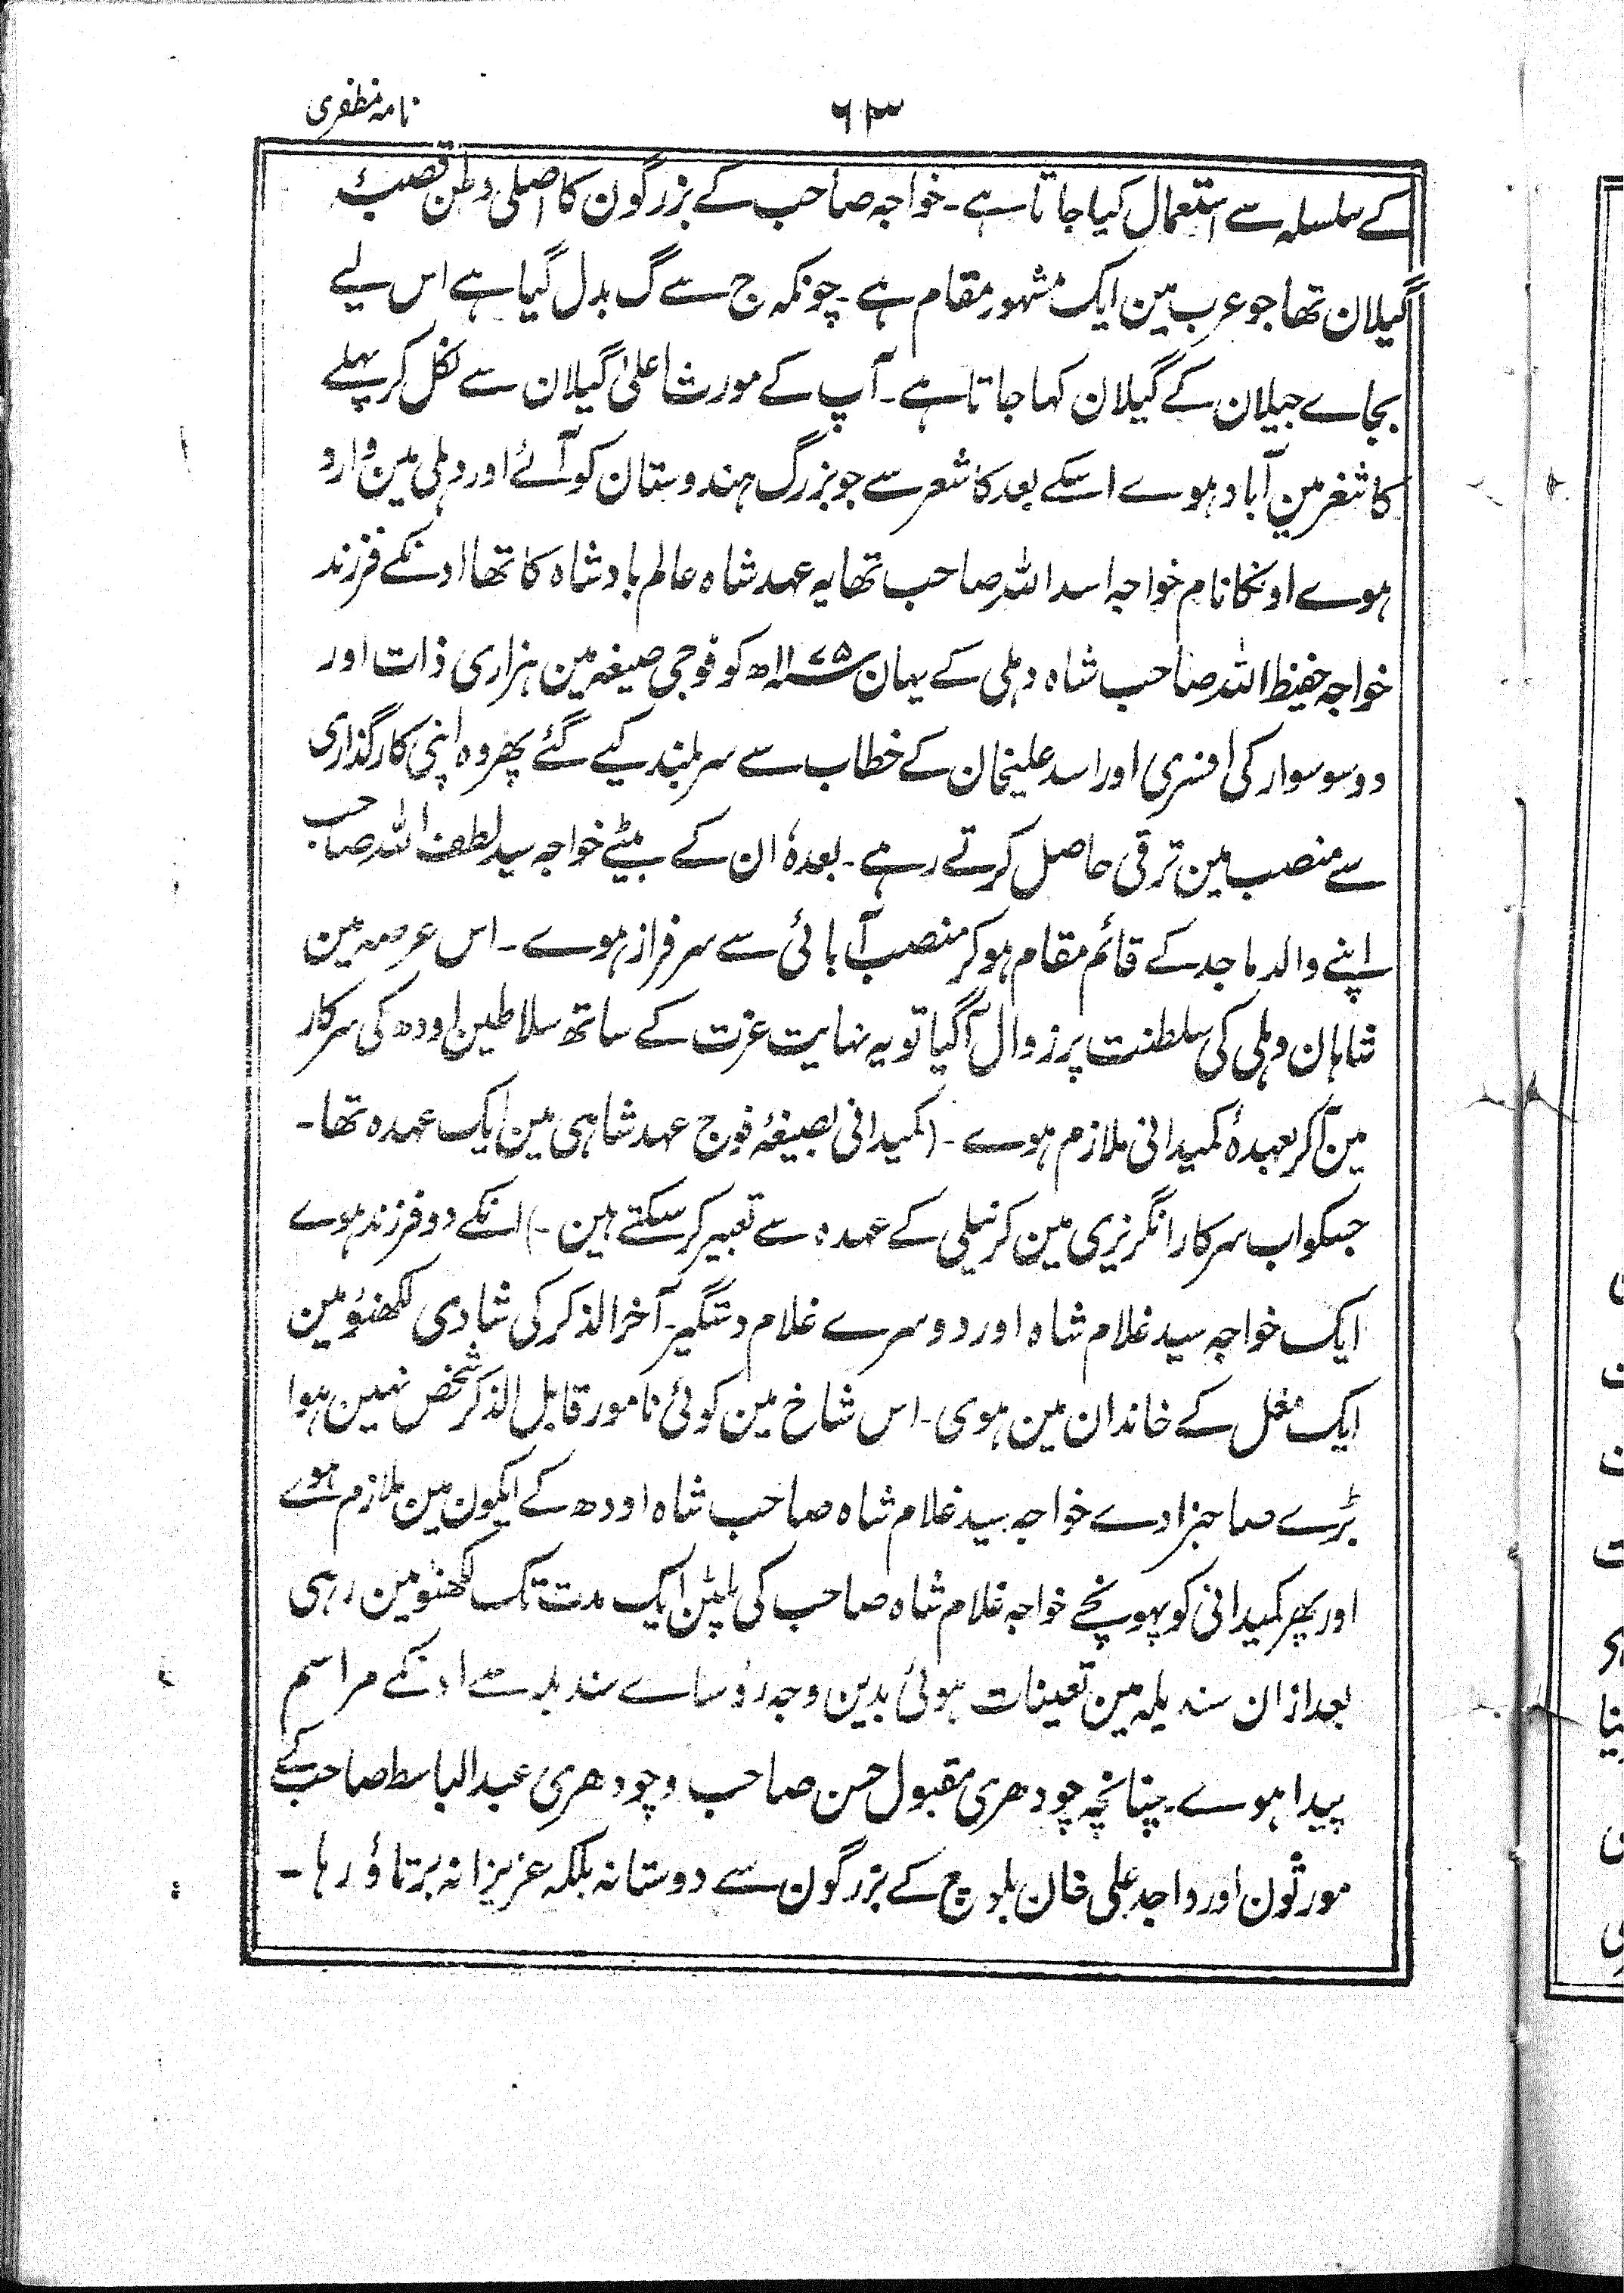 نامہ مظفری
۶۳
کے سلسلہ سے استعمال کیا جاتا ہے۔ خواجہ صاحب کے بزرگون کا اصلی وطن قصبۂ
گیلان تھا جو عرب مین ایک مشہور مقام ہے۔ چونکہ ج سے گ بدل گیا ہے اس لیے
بجاے جیلان کے گیلان کہا جاتا ہے۔ آپ کے مورث اعلیٰ گیلان سے نکل کر پہلے
کاشغر مین آباد ہوے اسکے بعد کاشغر سے جو بزرگ ہندوستان کو آئے اور دہلی مین وارد
ہوے اونکا نام خواجہ اسد اللہ صاحب تھا یہ عہد شاہ عالم بادشاہ کا تھا اونکے فرزند
خواجہ حفیظ اللہ صاحب شاہ دہلی کے یہان ۱۱۷۵ھ کو فوجی صیغہ مین ہزاری ذات اور
دو سو سوار کی افسری اور اسد علیخان کے خطاب سے سربلند کیے گئے پھر وہ اپنی کارگذاری
سے منصب مین ترقی حاصل کرتے رہے۔ بعدہٗ ان کے بیٹے خواجہ سید لطف اللہ صاحب
اپنے والد ماجد کے قائم مقام ہو کر منصب آبائی سے سرفراز ہوے۔ اس عرصہ مین
شاہان دہلی کی سلطنت پر زوال آ گیا تو یہ نہایت عزت کے ساتھ سلاطین اودھ کی سرکار
مین آکر بعہدۂ کمیدانی ملازم ہوے۔ (کمیدانی بصیغۂ فوج عہد شاہی مین ایک عہدہ تھا۔
جسکو اب سرکار انگریزی مین کرنیلی کے عہدہ سے تعبیر کر سکتے ہین۔) انکے دو فرزند ہوے
ایک خواجہ سید غلام شاہ اور دوسرے غلام دستگیر۔ آخر الذکر کی شادی لکھنؤ مین
ایک مغل کے خاندان مین ہوی۔ اس شاخ مین کوئی نامور قابل الذکر شخص نہین ہوا
بڑے صاحبزادے خواجہ سید غلام شاہ صاحب شاہ اودھ کے ایکیون مین ملازم ہوے
اور پھر کمیدانی کو پہونچے خواجہ غلام شاہ صاحب کی پلٹن ایک مدت تک لکھنؤ مین رہی
بعد ازان سندیلہ مین تعینات ہوئی بدین وجہ رؤساے سندیلہ سے اونکے مراسم
پیدا ہوے۔ چنانچہ چودھری مقبول حسن صاحب و چودھری عبدالباسط صاحب کے
مورثون اور واجد علی خان بلوچ کے بزرگون سے دوستانہ بلکہ عزیزانہ برتاؤ رہا۔